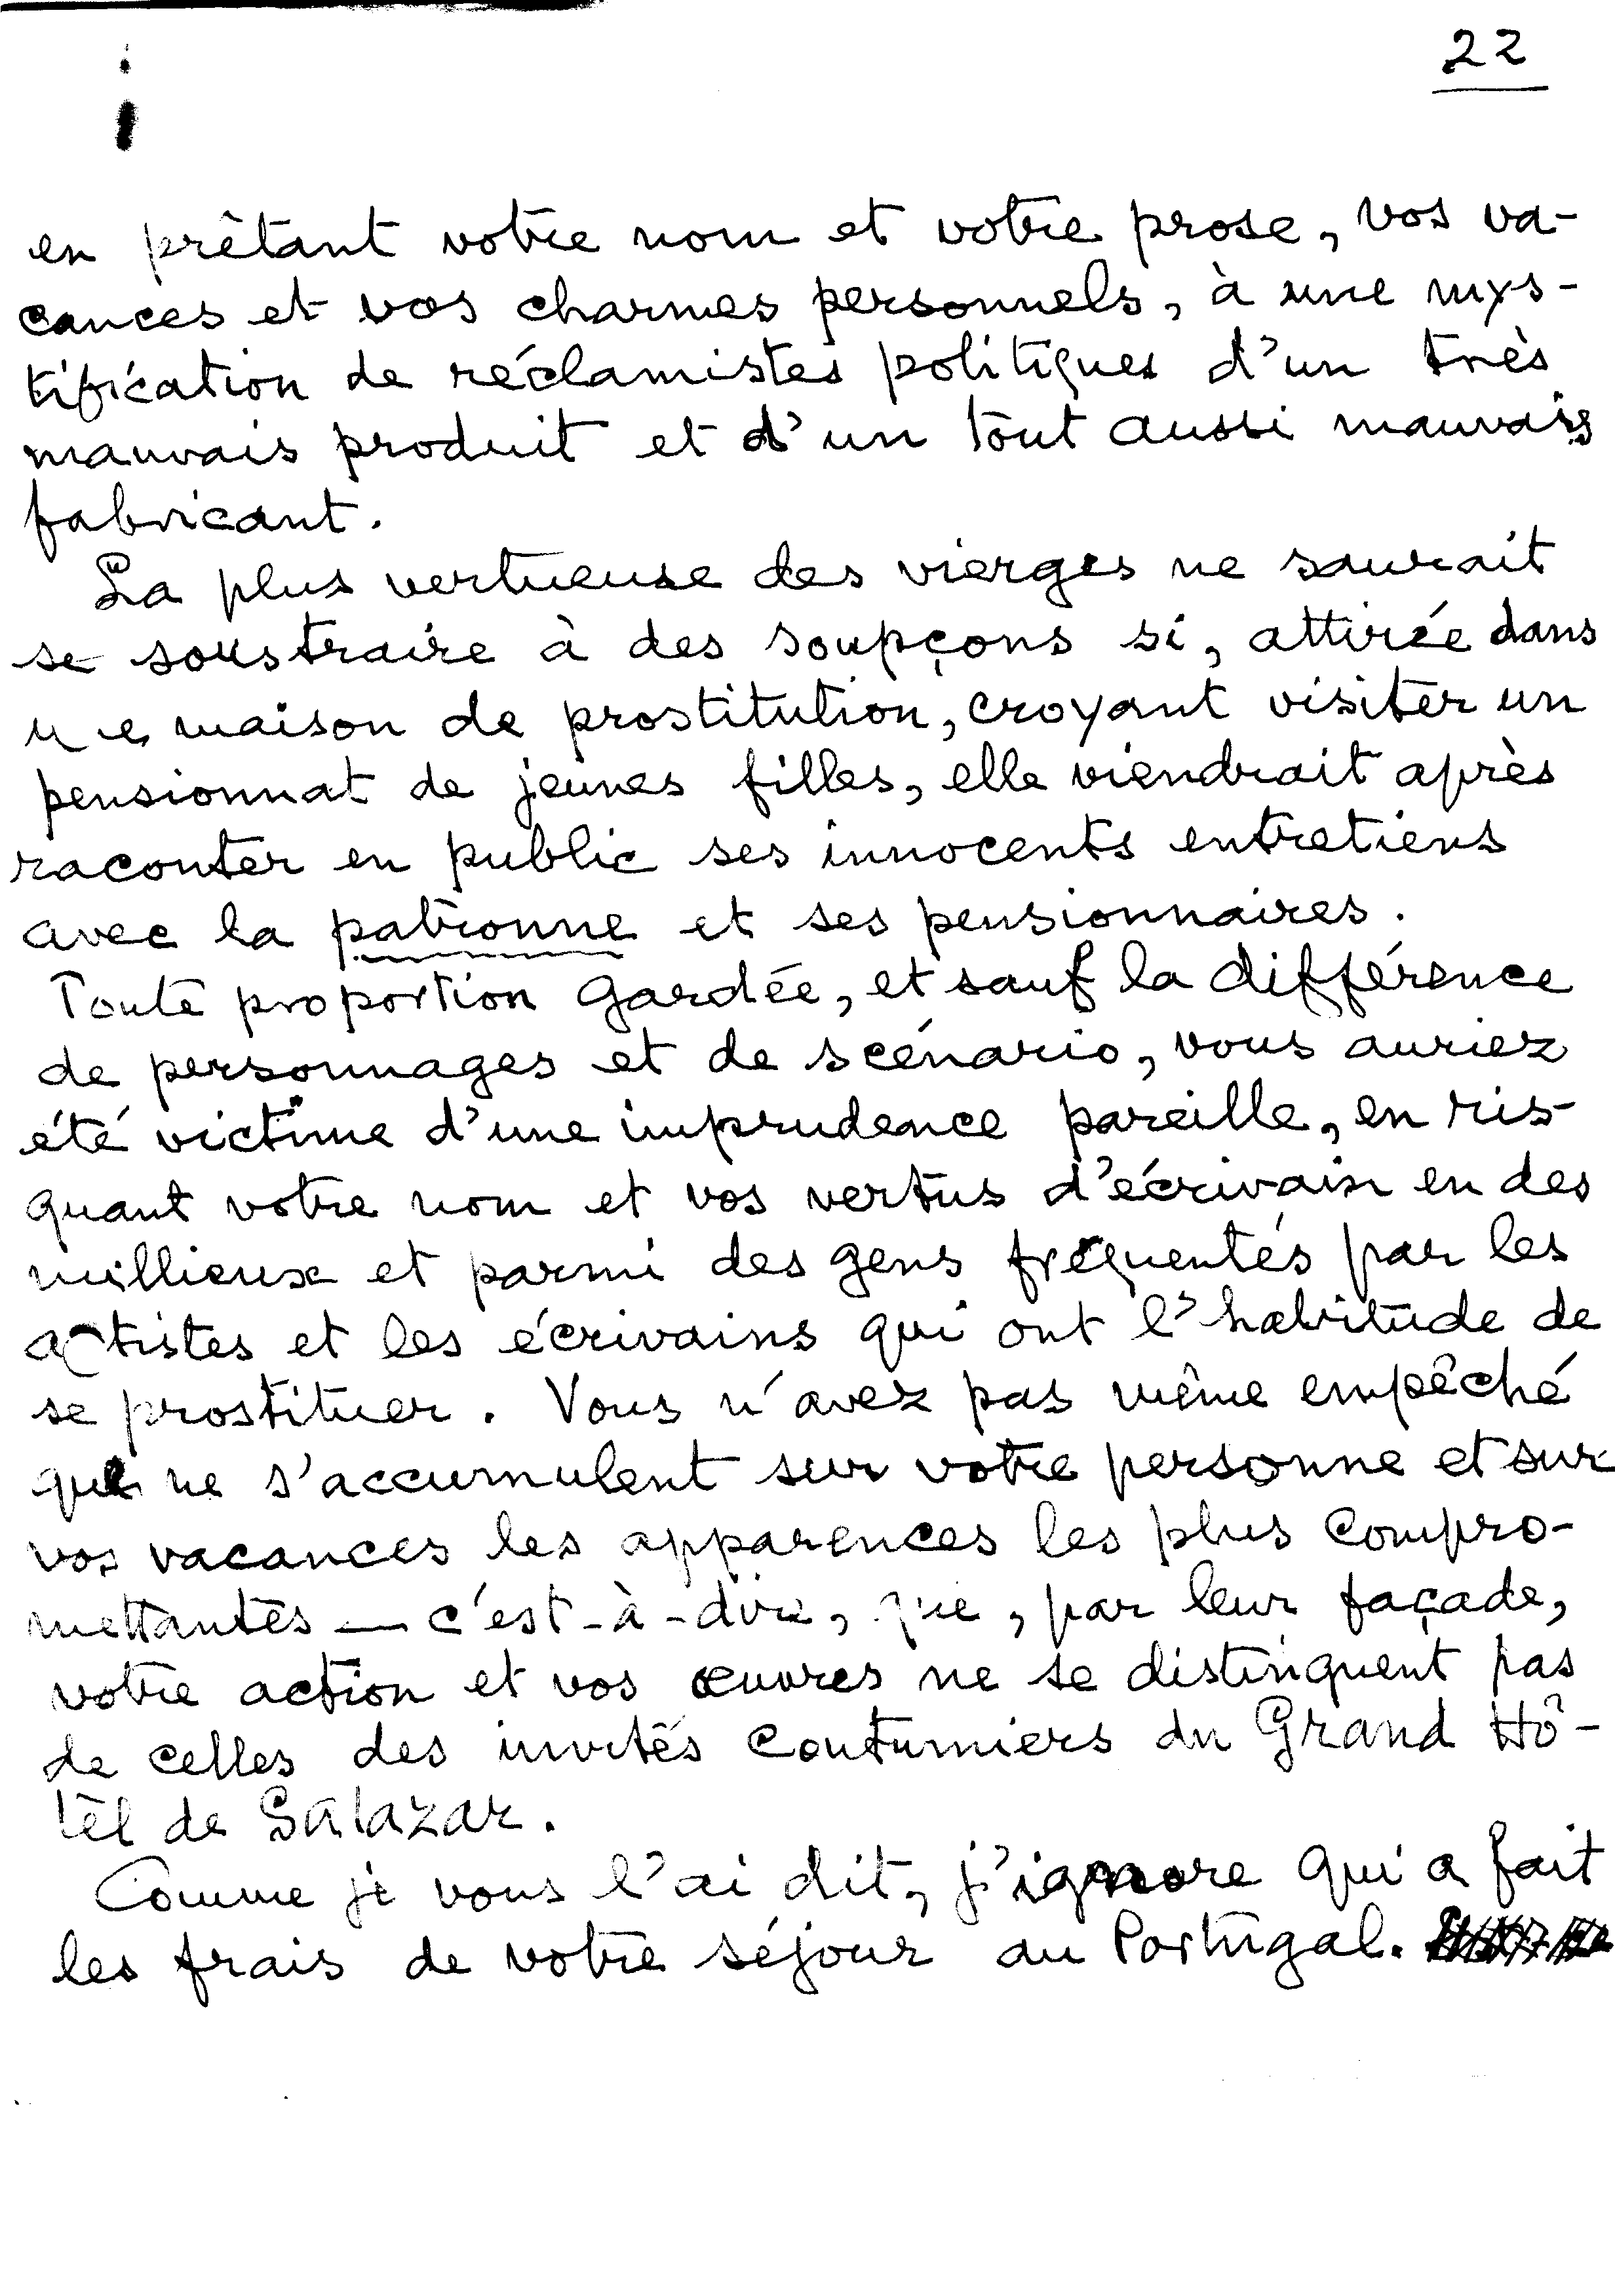 22
en prêtant votre nom et votre prose, vos va-
cances et vos charmes personnels, à une mys-
tification de réclamistes politiques d'un très
mauvais produit et d'un tout aussi mauvais
fabricant.
La plus vertueuse des vierges ne saurait
se soustraire à des soupçons si, attirée dans
une maison de prostitution, croyant visiter un
pensionnat de jeunes filles, elle viendrait après
raconter en public ses innocents entretiens
avec la patronne et ses pensionnaires.
Toute proportion gardée, et sauf la différence
de personnages et de scénario, vous auriez
été victime d'une imprudence pareille, en ris-
quant votre nom et vos vertus d'écrivain en des
millieux et parmi des gens fréquentés par les
artistes et les écrivains qui ont l'habitude de
se prostituer. Vous n'avez pas même empêché
que ne s'accumulent sur votre personne et sur
vos vacances les apparences les plus compro-
mettantes — c'est-à-dire, que, par leur façade,
votre action et vos œuvres ne se distinguent pas
de celles des invités coutumiers du Grand Hô-
tel de Salazar.
Comme je vous l'ai dit, j'ignore qui a fait
les frais de votre séjour au Portugal.